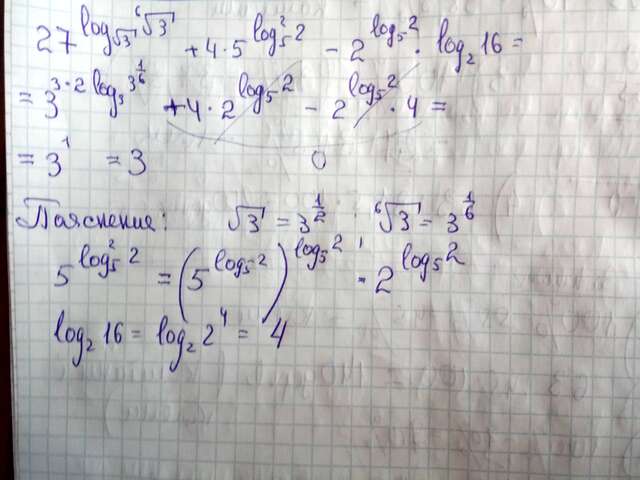 27^{log_{√3} ⁶√3} + 4·5^{log₅² 2} − 2^{log₅ 2} · log₂ 16 =
= 3^{3·2 log₃ 3^{1/6}} + 4·2^{log₅ 2} − 2^{log₅ 2} · 4 =
= 3¹ = 3 0
Пояснение: √3 = 3^{1/2}; ⁶√3 = 3^{1/6}
5^{log₅² 2} = (5^{log₅ 2})^{log₅ 2} = 2^{log₅ 2}
log₂ 16 = log₂ 2⁴ = 4